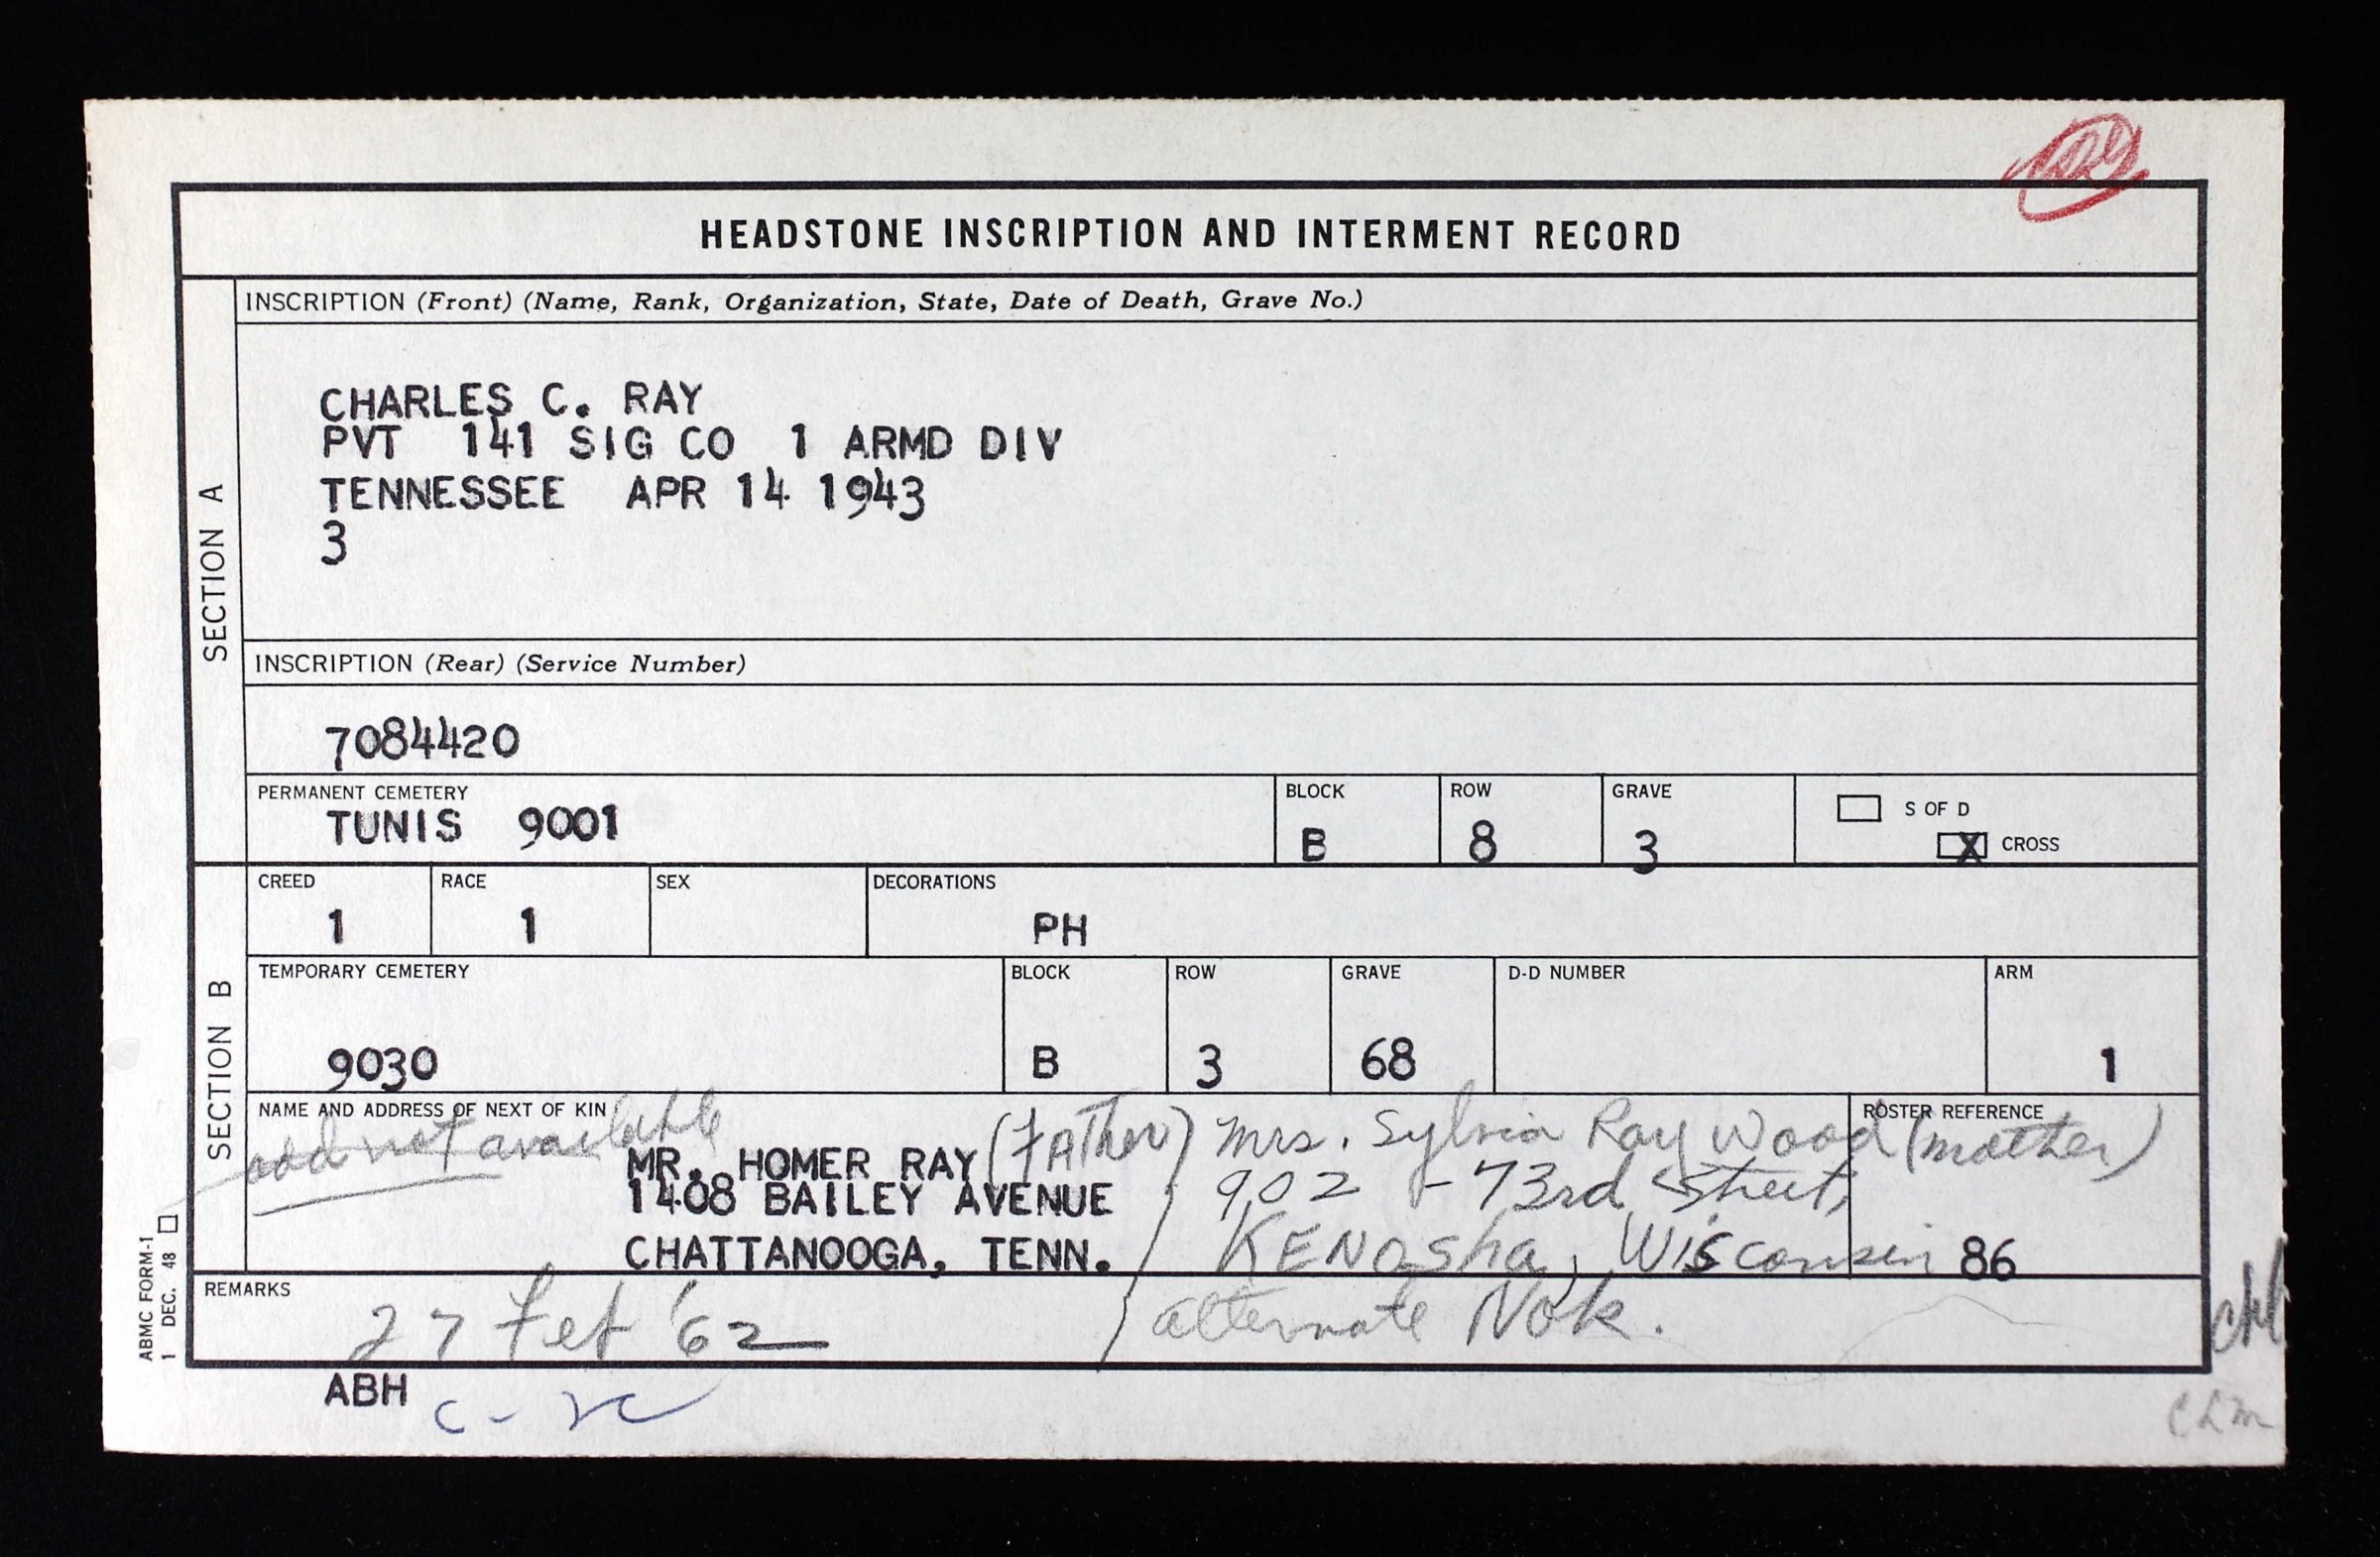 HEADSTONE INSCRIPTION AND INTERMENT RECORD
SECTION A
INSCRIPTION (Front) (Name, Rank, Organization, State, Date of Death, Grave No.)
CHARLES C. RAY
PVT 141 SIG CO 1 ARMD DIV
TENNESSEE APR 14 1943
3
INSCRIPTION (Rear) (Service Number)
7084420
PERMANENT CEMETERY BLOCK ROW GRAVE
TUNIS 9001 B 8 3
S OF D
X CROSS
SECTION B
CREED RACE SEX DECORATIONS
1 1 PH
TEMPORARY CEMETERY BLOCK ROW GRAVE D-D NUMBER ARM
9030 B 3 68 1
NAME AND ADDRESS OF NEXT OF KIN ROSTER REFERENCE
add not available
MR. HOMER RAY (Father)
1408 BAILEY AVENUE
CHATTANOOGA, TENN.
Mrs. Sylvia Ray Wood (mother)
902 - 73rd Street,
KENOSha, Wisconsin
86
alternate NoK.
REMARKS
27 Feb '62
ABH
ABMC FORM-1
1 DEC. 48
CLM